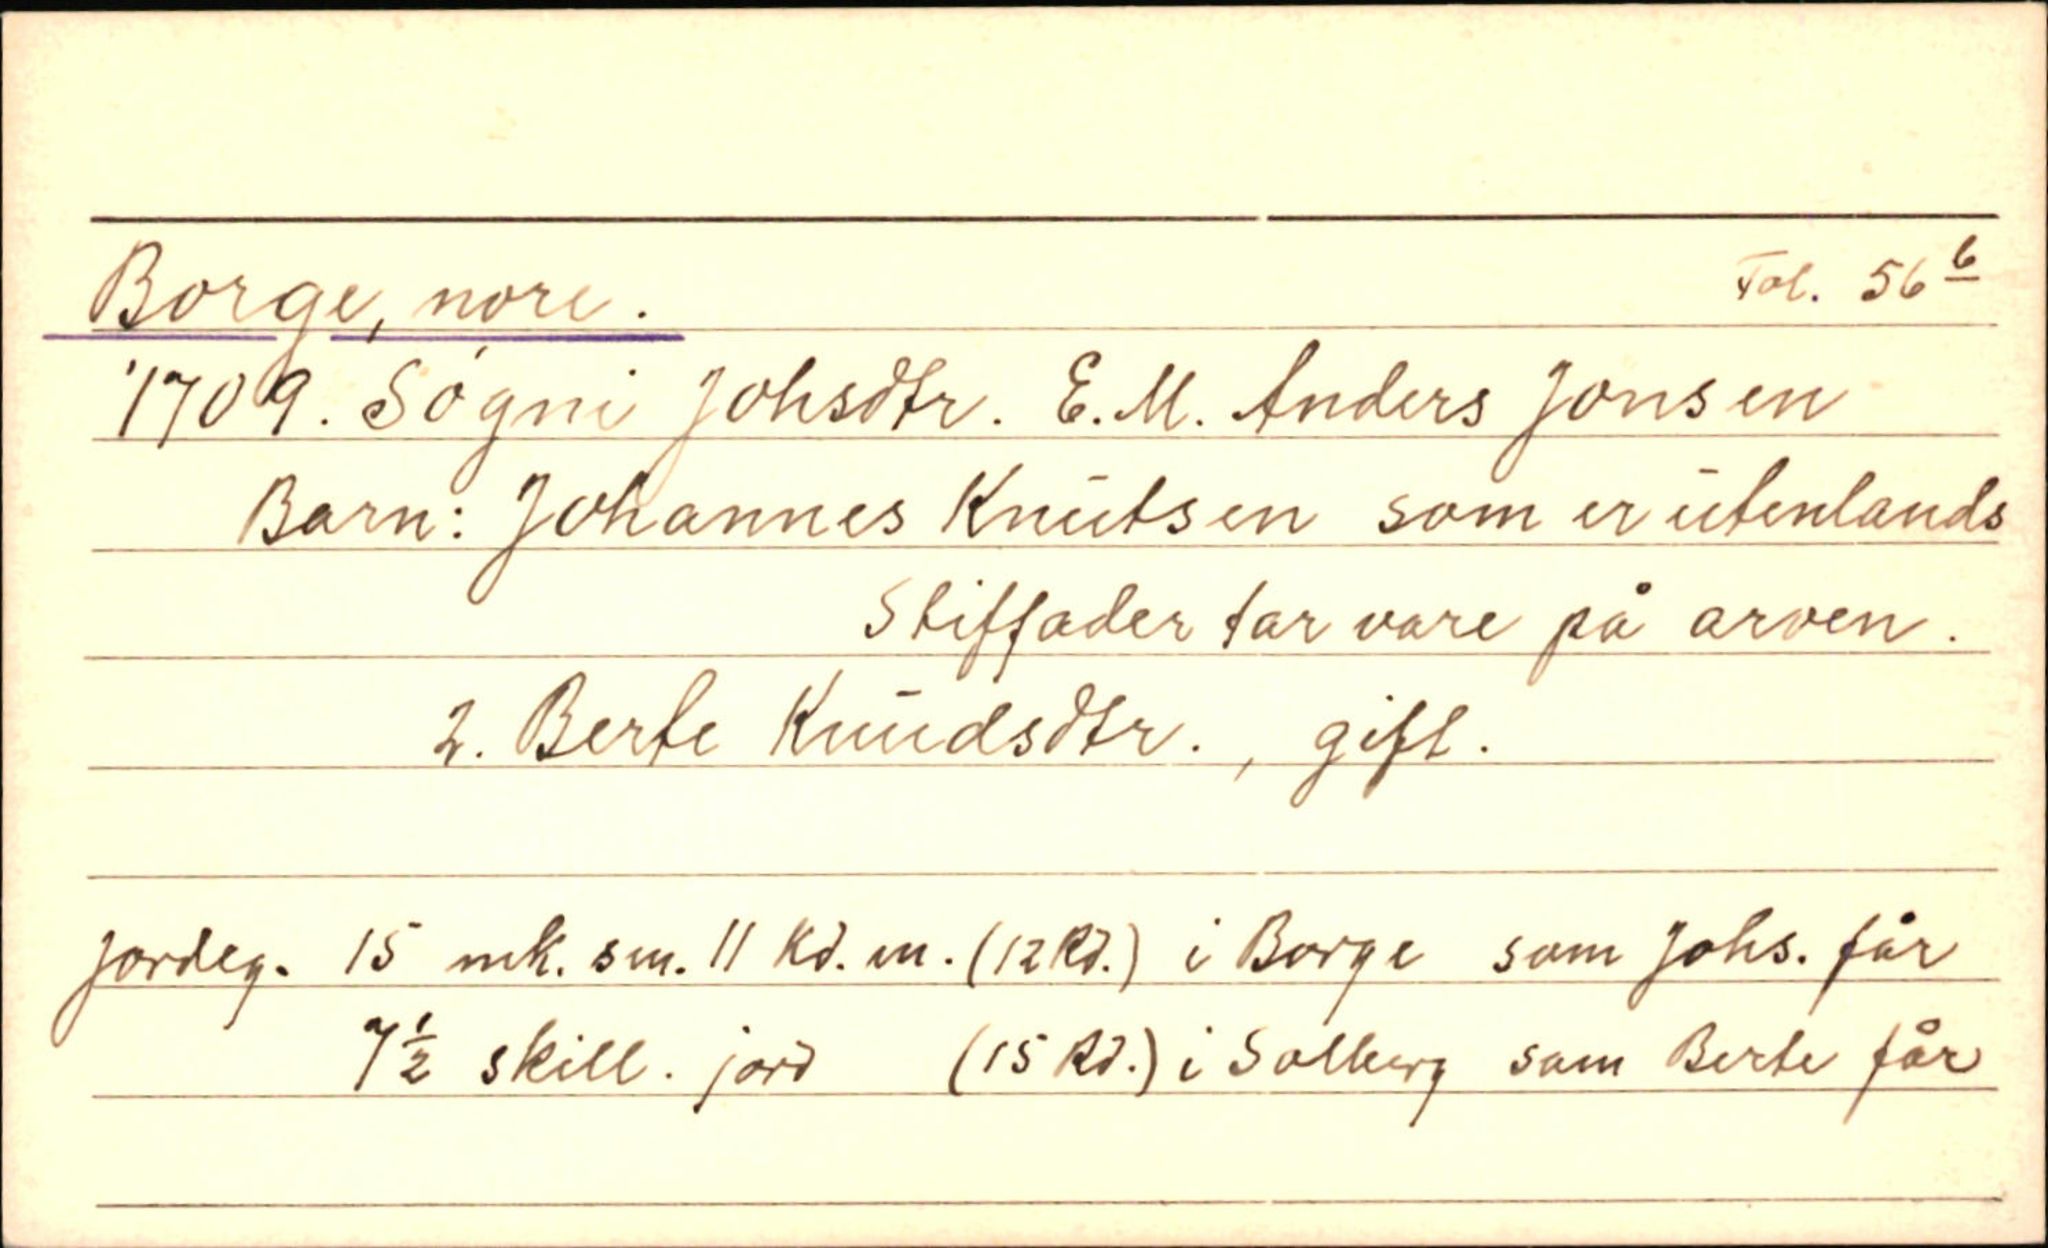 Borge, nore. Fol. 56 b
1709. Sógni Johsdtr. E.M. Anders Jonsen
Barn: Johannes Knutsen som er utenlands
Stiffader tar vare på arven.
2. Berte Knudsdtr., gift.
Jordeg. 15 mk. sm. 11 Kd. m. (12 Rd.) i Borge som Johs. får
7 1/2 skill. jord (15 Rd.) i Solberg som Berte får